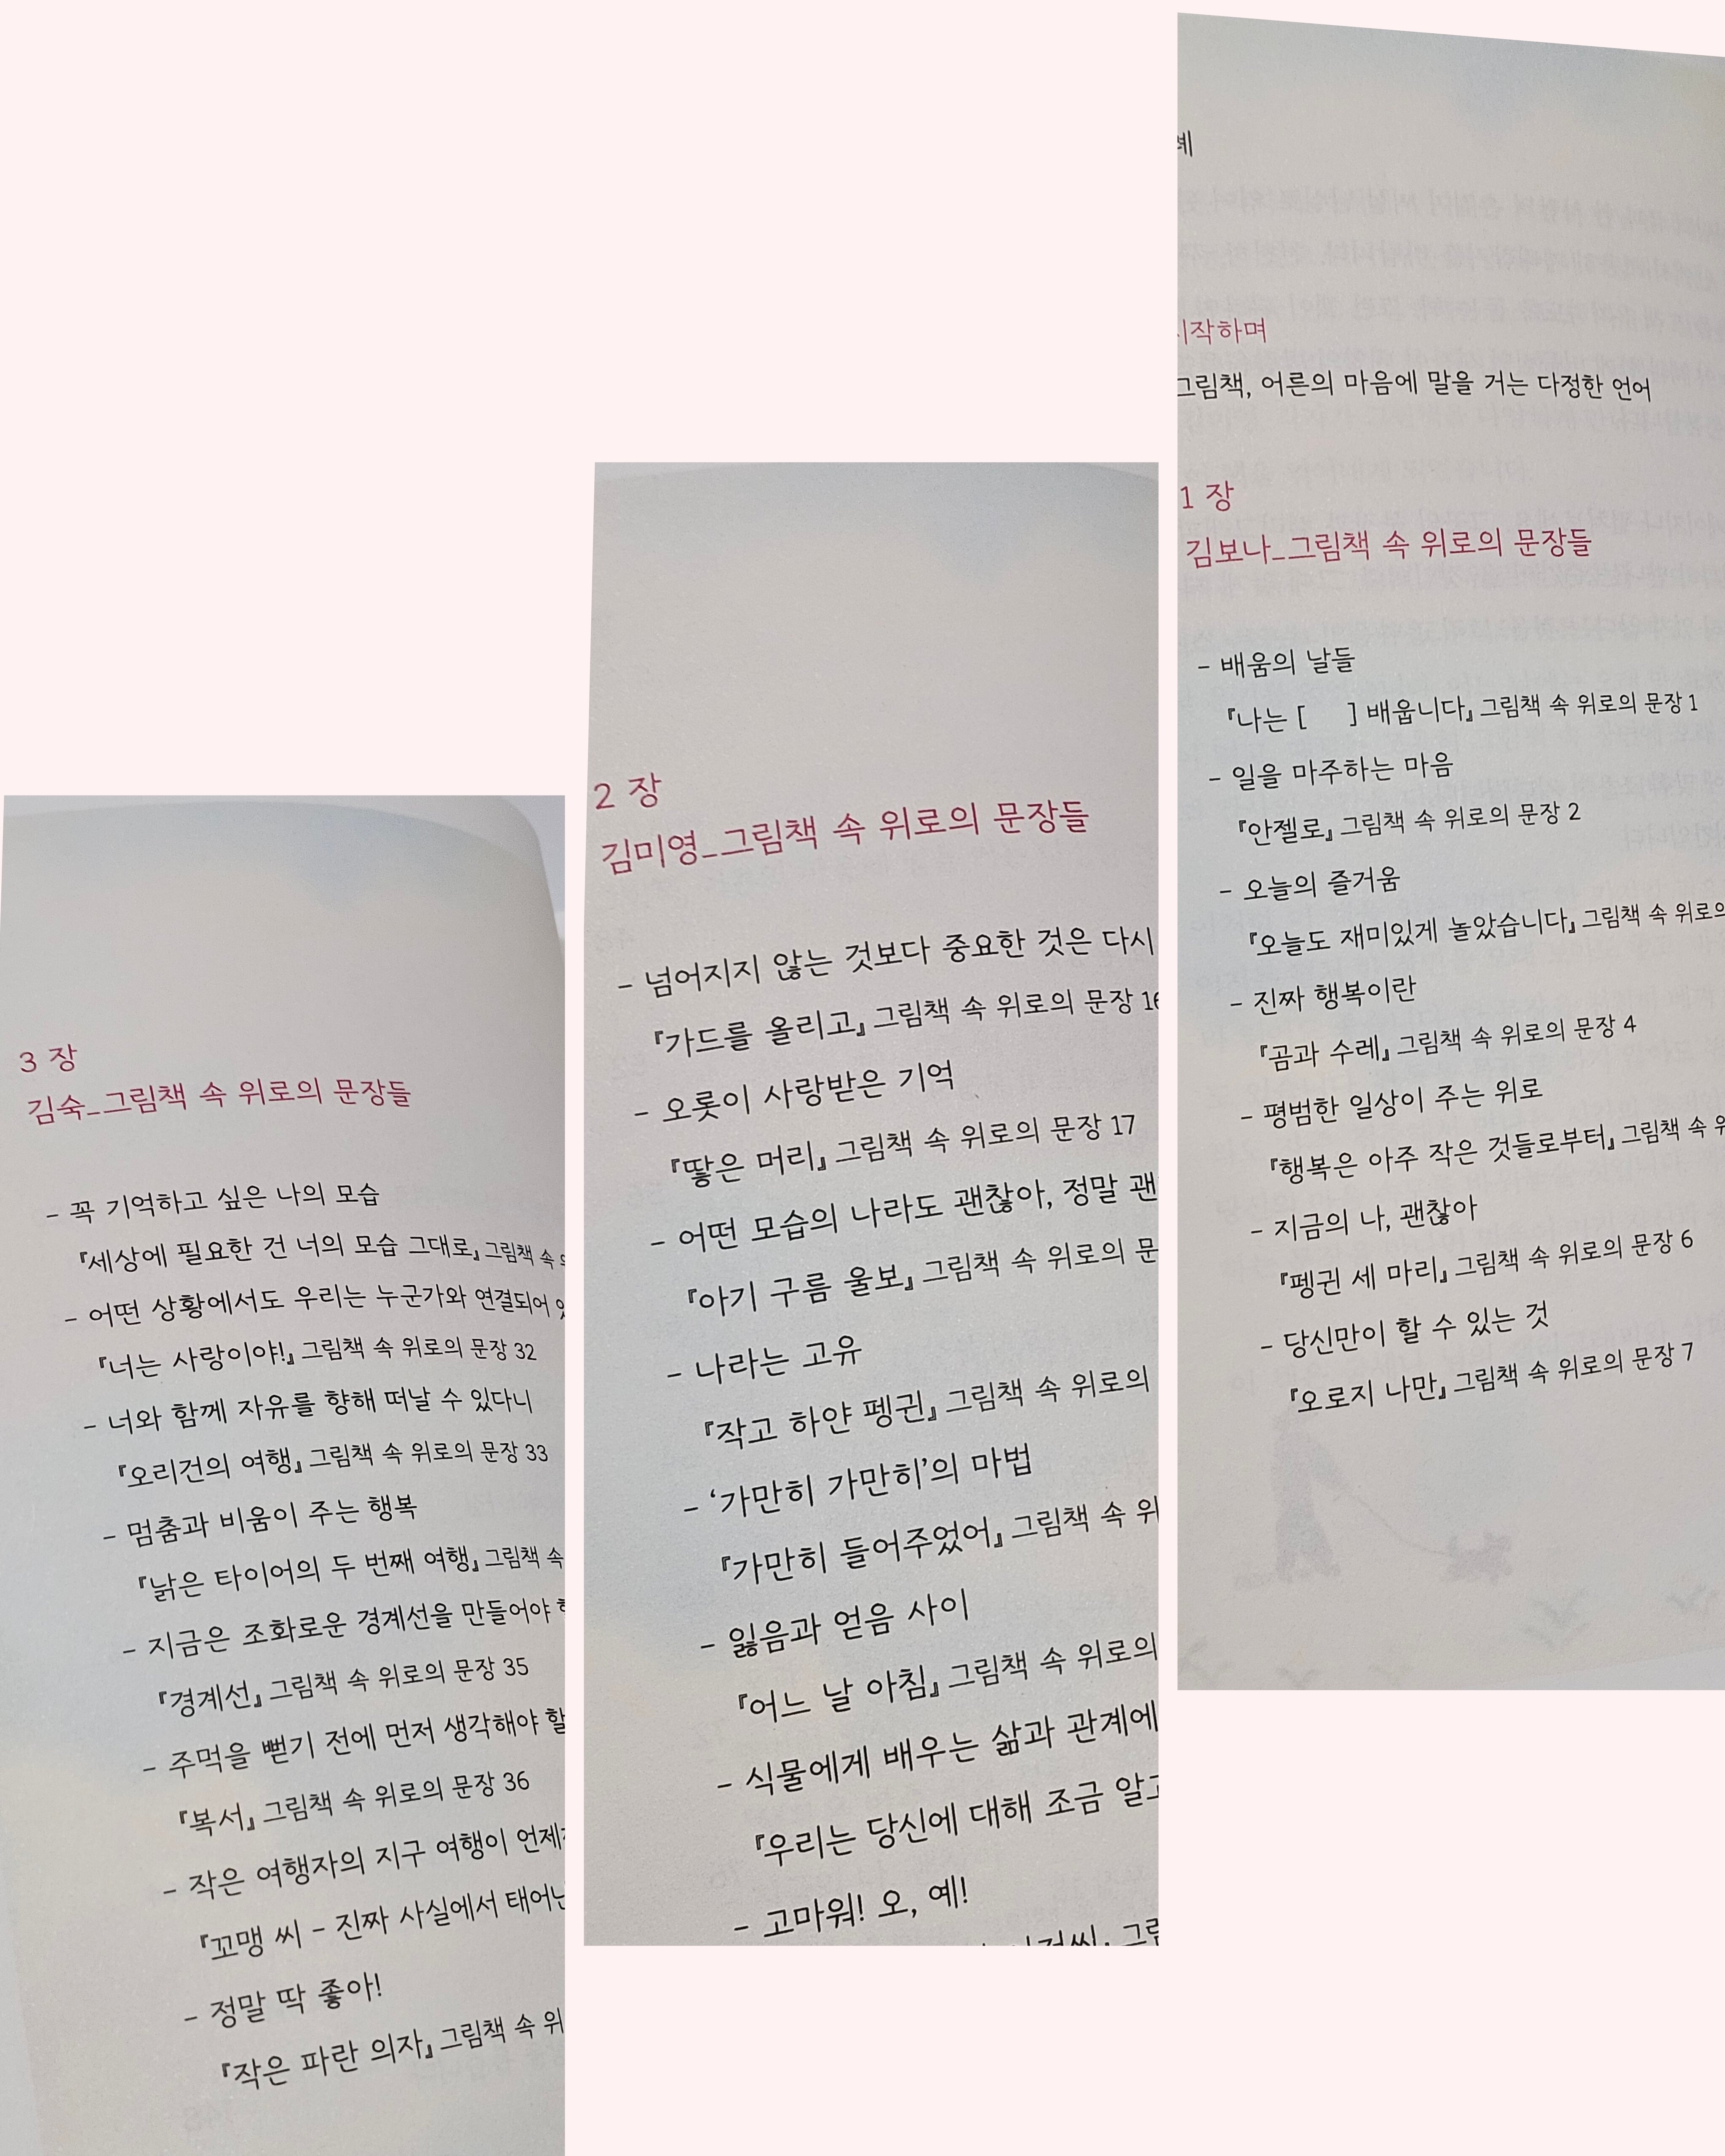 3 장
김숙_그림책 속 위로의 문장들
- 꼭 기억하고 싶은 나의 모습
『세상에 필요한 건 너의 모습 그대로』 그림책 속
- 어떤 상황에서도 우리는 누군가와 연결되어
『너는 사랑이야!』 그림책 속 위로의 문장 32
- 너와 함께 자유를 향해 떠날 수 있다니
『오리건의 여행』 그림책 속 위로의 문장 33
- 멈춤과 비움이 주는 행복
『낡은 타이어의 두 번째 여행』 그림책 속
- 지금은 조화로운 경계선을 만들어야
『경계선』 그림책 속 위로의 문장 35
- 주먹을 뻗기 전에 먼저 생각해야 할
『복서』 그림책 속 위로의 문장 36
- 작은 여행자의 지구 여행이 언제
『꼬맹 씨 - 진짜 사실에서 태어난
- 정말 딱 좋아!
『작은 파란 의자』 그림책 속 위
2 장
김미영_그림책 속 위로의 문장들
- 넘어지지 않는 것보다 중요한 것은 다시
『가드를 올리고』 그림책 속 위로의 문장 16
- 오롯이 사랑받은 기억
『땋은 머리』 그림책 속 위로의 문장 17
- 어떤 모습의 나라도 괜찮아, 정말 괜
『아기 구름 울보』 그림책 속 위로의 문
- 나라는 고유
『작고 하얀 펭귄』 그림책 속 위로의
- ‘가만히 가만히’의 마법
『가만히 들어주었어』 그림책 속 위
- 잃음과 얻음 사이
『어느 날 아침』 그림책 속 위로의
- 식물에게 배우는 삶과 관계에
『우리는 당신에 대해 조금 알고
- 고마워! 오, 예!
례
시작하며
그림책, 어른의 마음에 말을 거는 다정한 언어
1 장
김보나_그림책 속 위로의 문장들
- 배움의 날들
『나는 [ ] 배웁니다』 그림책 속 위로의 문장 1
- 일을 마주하는 마음
『안젤로』 그림책 속 위로의 문장 2
- 오늘의 즐거움
『오늘도 재미있게 놀았습니다』 그림책 속 위로의
- 진짜 행복이란
『곰과 수레』 그림책 속 위로의 문장 4
- 평범한 일상이 주는 위로
『행복은 아주 작은 것들로부터』 그림책 속 위
- 지금의 나, 괜찮아
『펭귄 세 마리』 그림책 속 위로의 문장 6
- 당신만이 할 수 있는 것
『오로지 나만』 그림책 속 위로의 문장 7